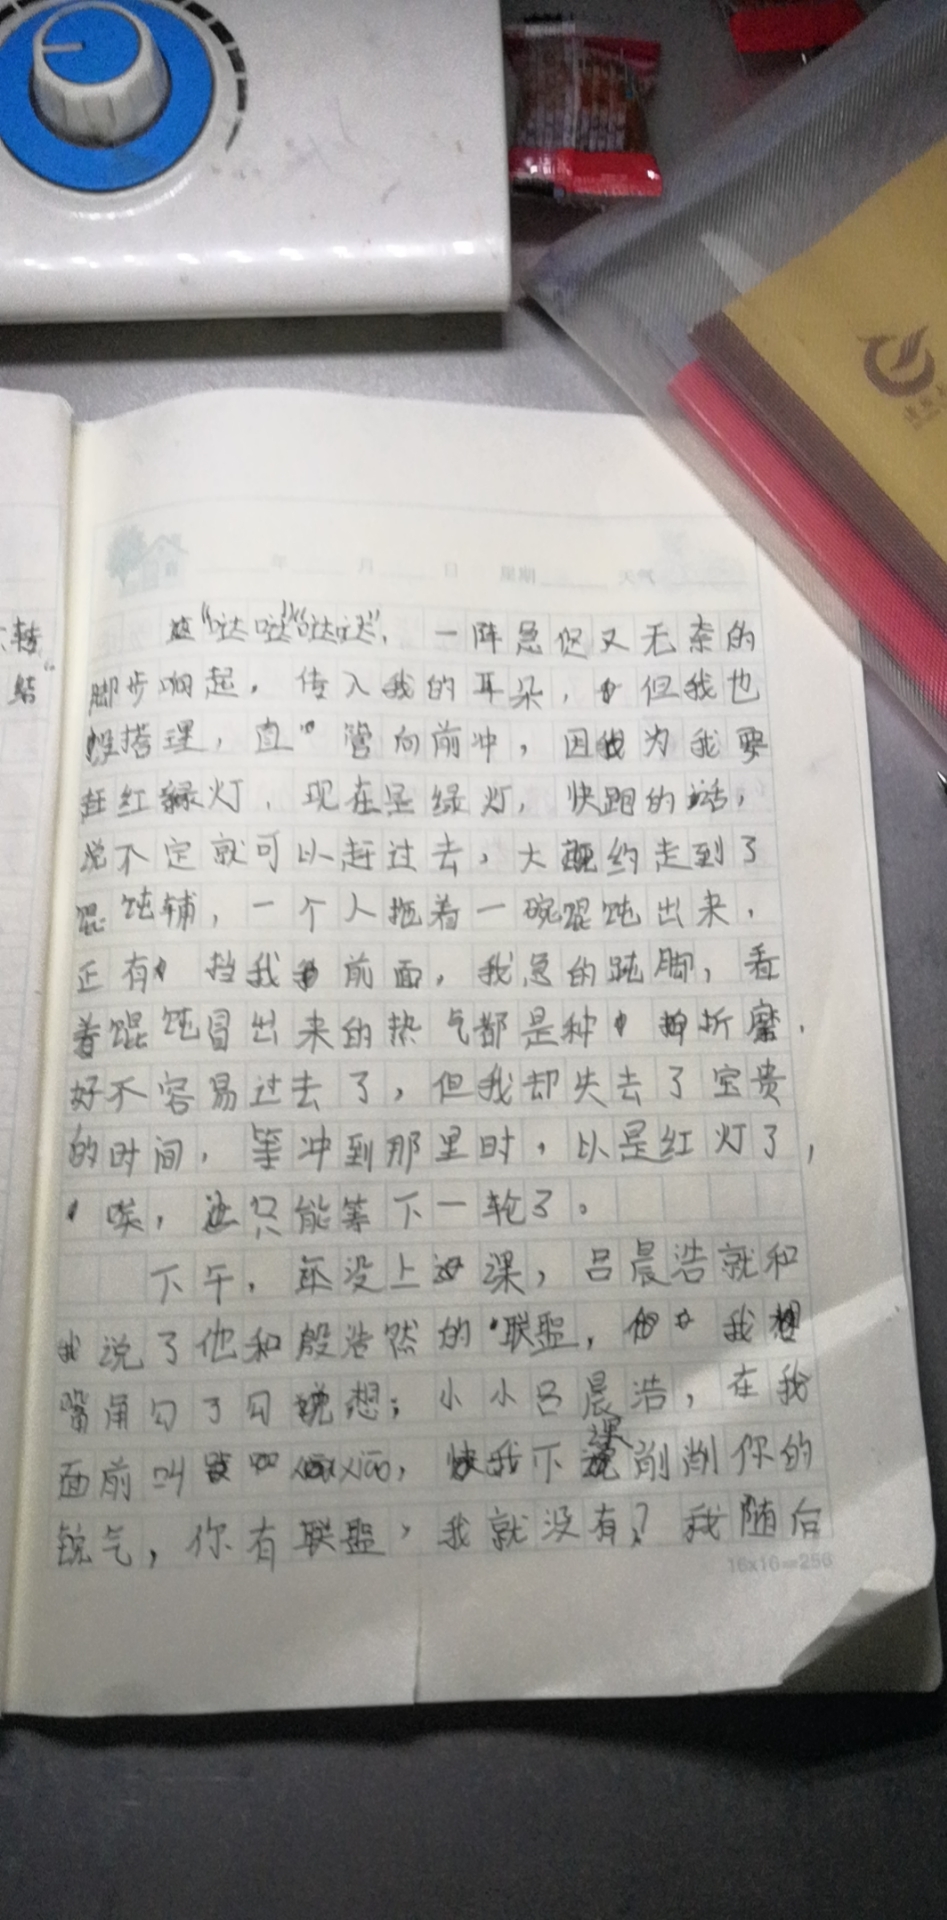 年 月 日 星期 天气
转
结
“哒哒”“哒哒”，一阵急促又无奈的
脚步响起，传入我的耳朵，但我也
没搭理，直管向前冲，因为我要
赶红绿灯，现在是绿灯，快跑的话，
说不定就可以赶过去，大概约走到了
混饨辅，一个人拖着一碗混饨出来，
正有挡我前面，我急的跺脚，看
着馄饨冒出来的热气都是种折磨，
好不容易过去了，但我却失去了宝贵
的时间，等冲到那里时，以是红灯了，
唉，只能等下一轮了。
下午，还没上课，吕晨浩就和
我说了他和殷浩然的联盟，我
嘴角勾了勾想；小小吕晨浩，在我
面前叫，我下课削削你的
锐气，你有联盟，我就没有？我随后
16x16=256